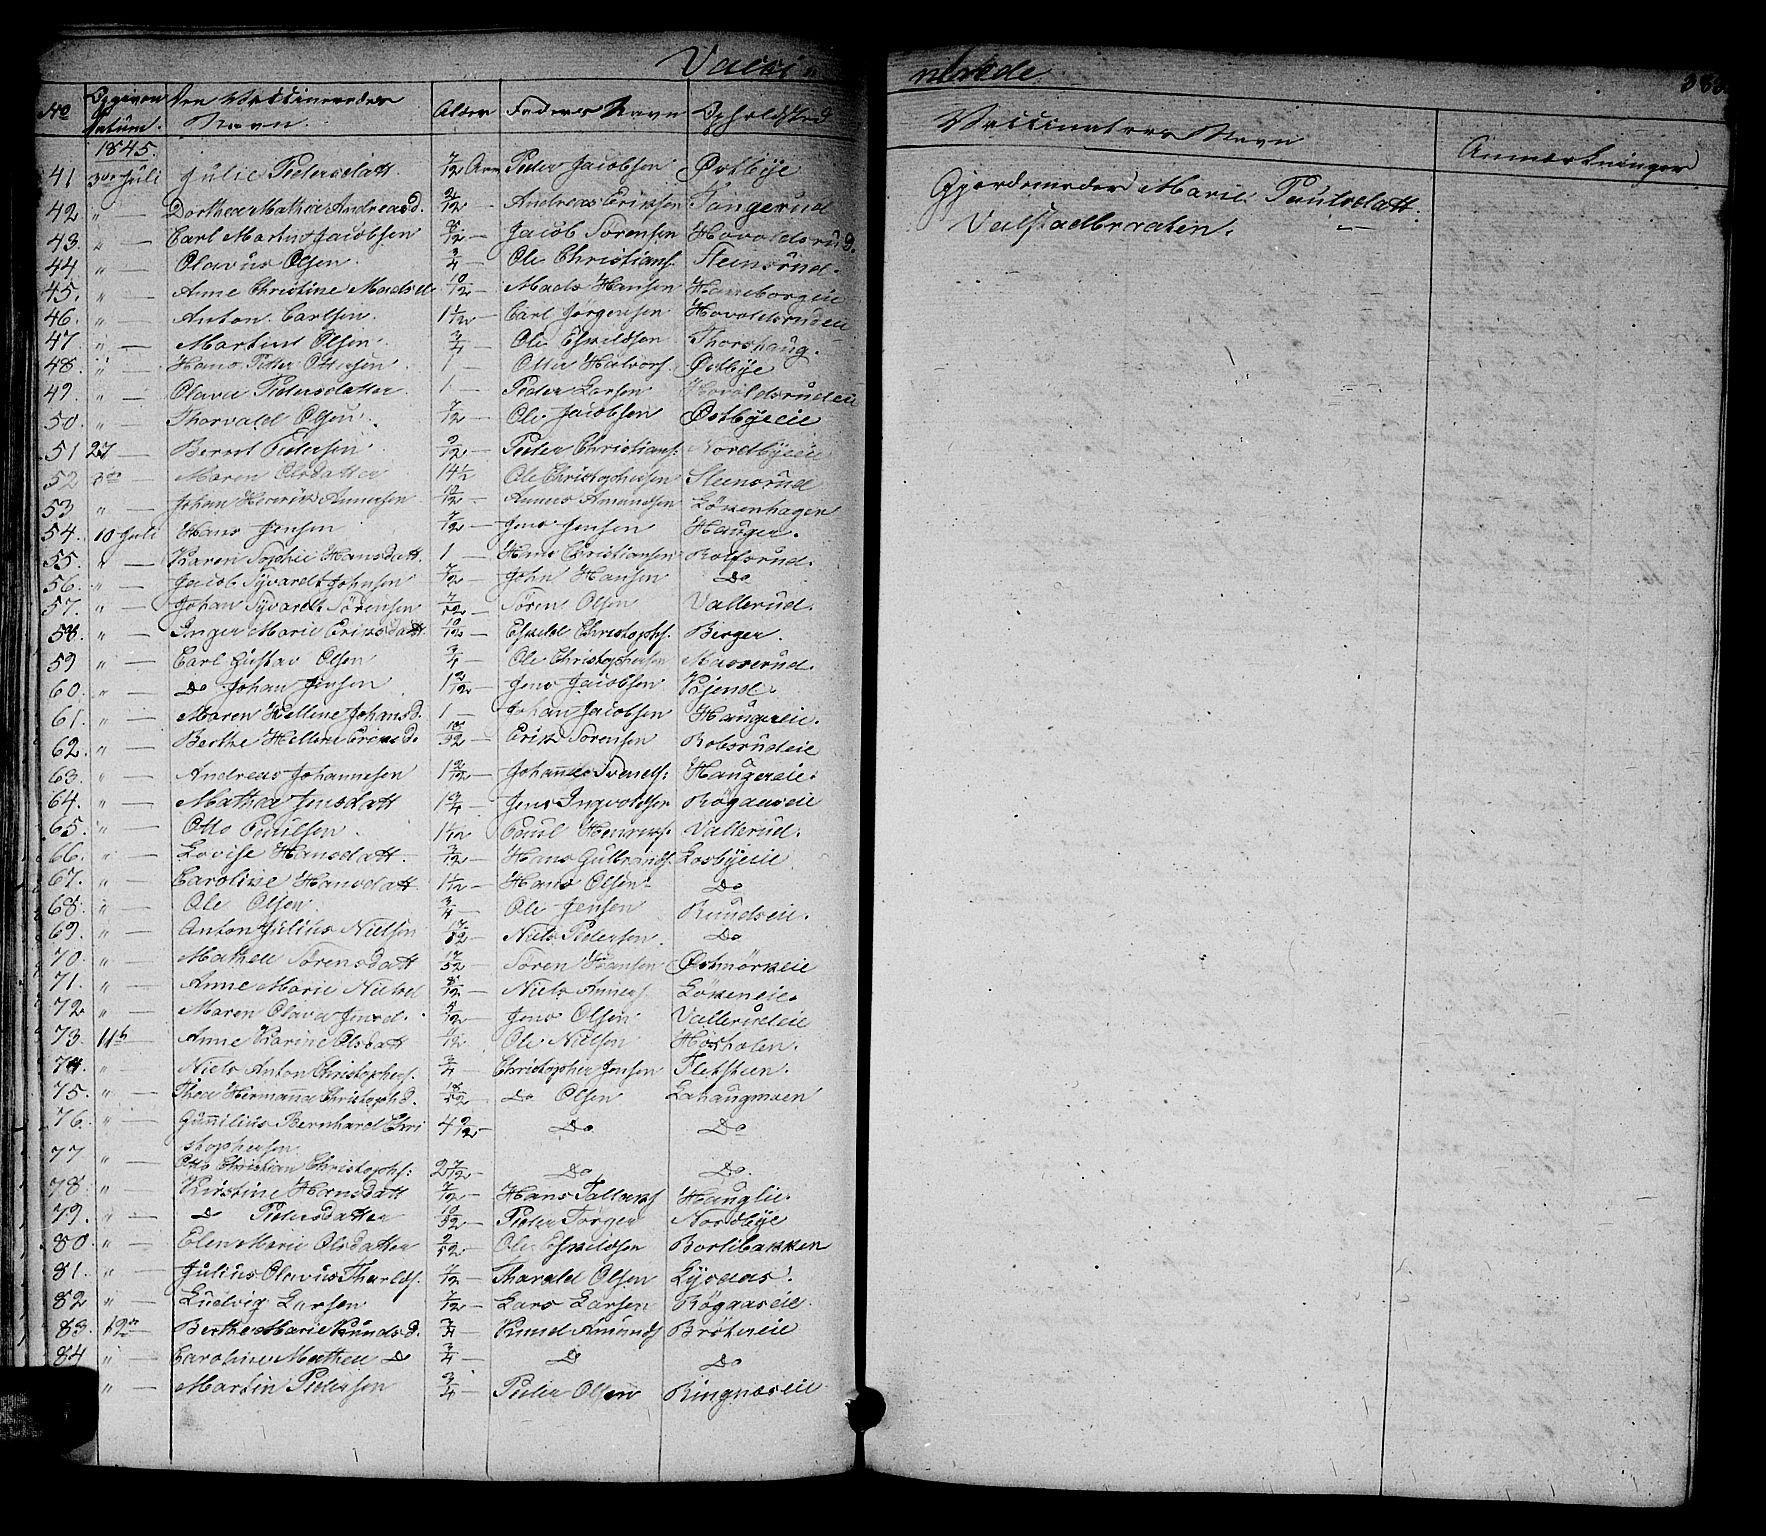 Vacci"
No Opgiven Datum. Den Vaccineredes Navn. Alder Faders Navn Opholdsted
1845.
41 3die Juli Julie Pedersdatt. 7/12 Aar Peder Jacobsen Østbye
42. " — Dorthea Mathea Andreasd. 2/12 — Andreas Eriksen Tangerud
43. " — Carl Martin Jacobsen 8/12 — Jacob Sørensen Hovoldsrud.
44 " — Olavus Olsen 3/4 — Ole Christians. Steensrud.
45. " — Anne Christine Madsd. 10/12 — Mads Hansen Haneborgeie
46. " — Anton Carlsen. 1 1/12 — Carl Jørgensen Hovoldsrudeie
47. " — Martin Olsen. 3/4 — Ole Eskildsen Thorshaug.
48. " — Hans Petter Ottersen 1 — Otter Halvors. Østbye
49. " — Olava Pedersdatter 1 — Peder Larsen Hovoldsrudeie
50. " — Thorvald Olsen 7/12 — Ole Jacobsen Østbyeeie
51 27 — Bernt Pedersen 9/12 — Peder Christians. Nordbyeeie
52 3die — Maren Olsdatter 14 1/2 — Ole Christophersen Steensrud
53 " — Johan Henrik Annersen 10/12 — Anners Amundsen Lökenhagen
54. 10 Juli Hans Jensen 7/12 — Jens Jensen Hauger.
55. " — Karen Sophie Hansdatt. 1 — Hans Christiansen Rolfsrud.
56. " — Jacob Syvardt Johnsen 7/12 — John Hansen Do
57. " — Johan Syvardt Sörensen 7/52 — Sören Olsen Vallerud.
58. " — Inger Marie Eriksdatt. 10/12 — Eskild Christophs. Berger.
59 " — Carl Gustav Olsen 3/4 — Ole Christophersen Masserud.
60. " — Do Johan Jensen 1 2/12 — Jens Jacobsen Kjend.
61. " — Maren Helline Johansd. 1 — Johan Jacobsen Haugereie.
62. " — Berthe Hellene Eriksd. 10/52 — Erik Sørensen Robsrudeie
63. " — Andreas Johannesen 1 2/12 — Johannes Svends: Haugereie.
64. " — Mathea Jensdatt 1 3/4 — Jens Ingvoldsen Røgaaseie
65. " — Otto Paulsen. 1 1/12 — Paul Henriks. Vallerud.
66. " — Lovise Hansdatt. 3/12 — Hans Gulbrands. Losbyeie
67. " — Caroline Hansdatt 1 1/12 — Hans Olsen Do
68. " — Ole Olsen. 3/4 — Ole Jensen Ruudseie.
69. " — Anton Julius Nielsen 17/52 — Niels Pedersen. Do
70. " — Mathea Sörensdatt 17/52 — Sören Hansen Østmörkeie
71. " — Anne Marie Nielsd 8/12 — Niels Anners. Lökeneie.
72. " — Maren Olava Jensd. 5/12 — Jens Olsen Vallerudeie
73. 11te — Anne Karine Olsdatt 1/12 — Ole Nielsen Høsholen.
74. " — Niels Anton Christophers. 3/4 — Christopher Jensen Fletsteen.
75. " — Thea Hermanna Christophd. 18/52 — Do Olsen Lahaugmoen
76. " — Gunnilius Bernhard Chri 4 9/12 — Do Do
stophersen.
77 " — Otto Christian Christophs: 2 7/12 — Do Do.
78. " — Kirstine Hansdatt 7/12 — Hans Tallaks Hauglie.
79. " — Do Pedersdatter 10/52 — Peder Torger Nordbye
80. " — Elen Marie Olsdatter 9/52 — Ole Eskildsen Bortibakken
81. " — Julius Olavus Tharlds. 7/12 — Tharald Olsen Lysaas.
82 " — Ludvig Larsen 7/12 — Lars Larsen Røgaaseie
83. 12te — Berthe Marie Knudsd. 3/4 — Knud Amunds Bröttereie
84 " — Caroline Mathea Do 3/4 — Do Do
" — Martin Pedersen 3/4 — Peder Olsen Ringnæseie
nerede
388.
Vaccinateurs Navn
Anmærkninger
Gjordemoder Marie Paulsdatt.
Valstadbraaten.